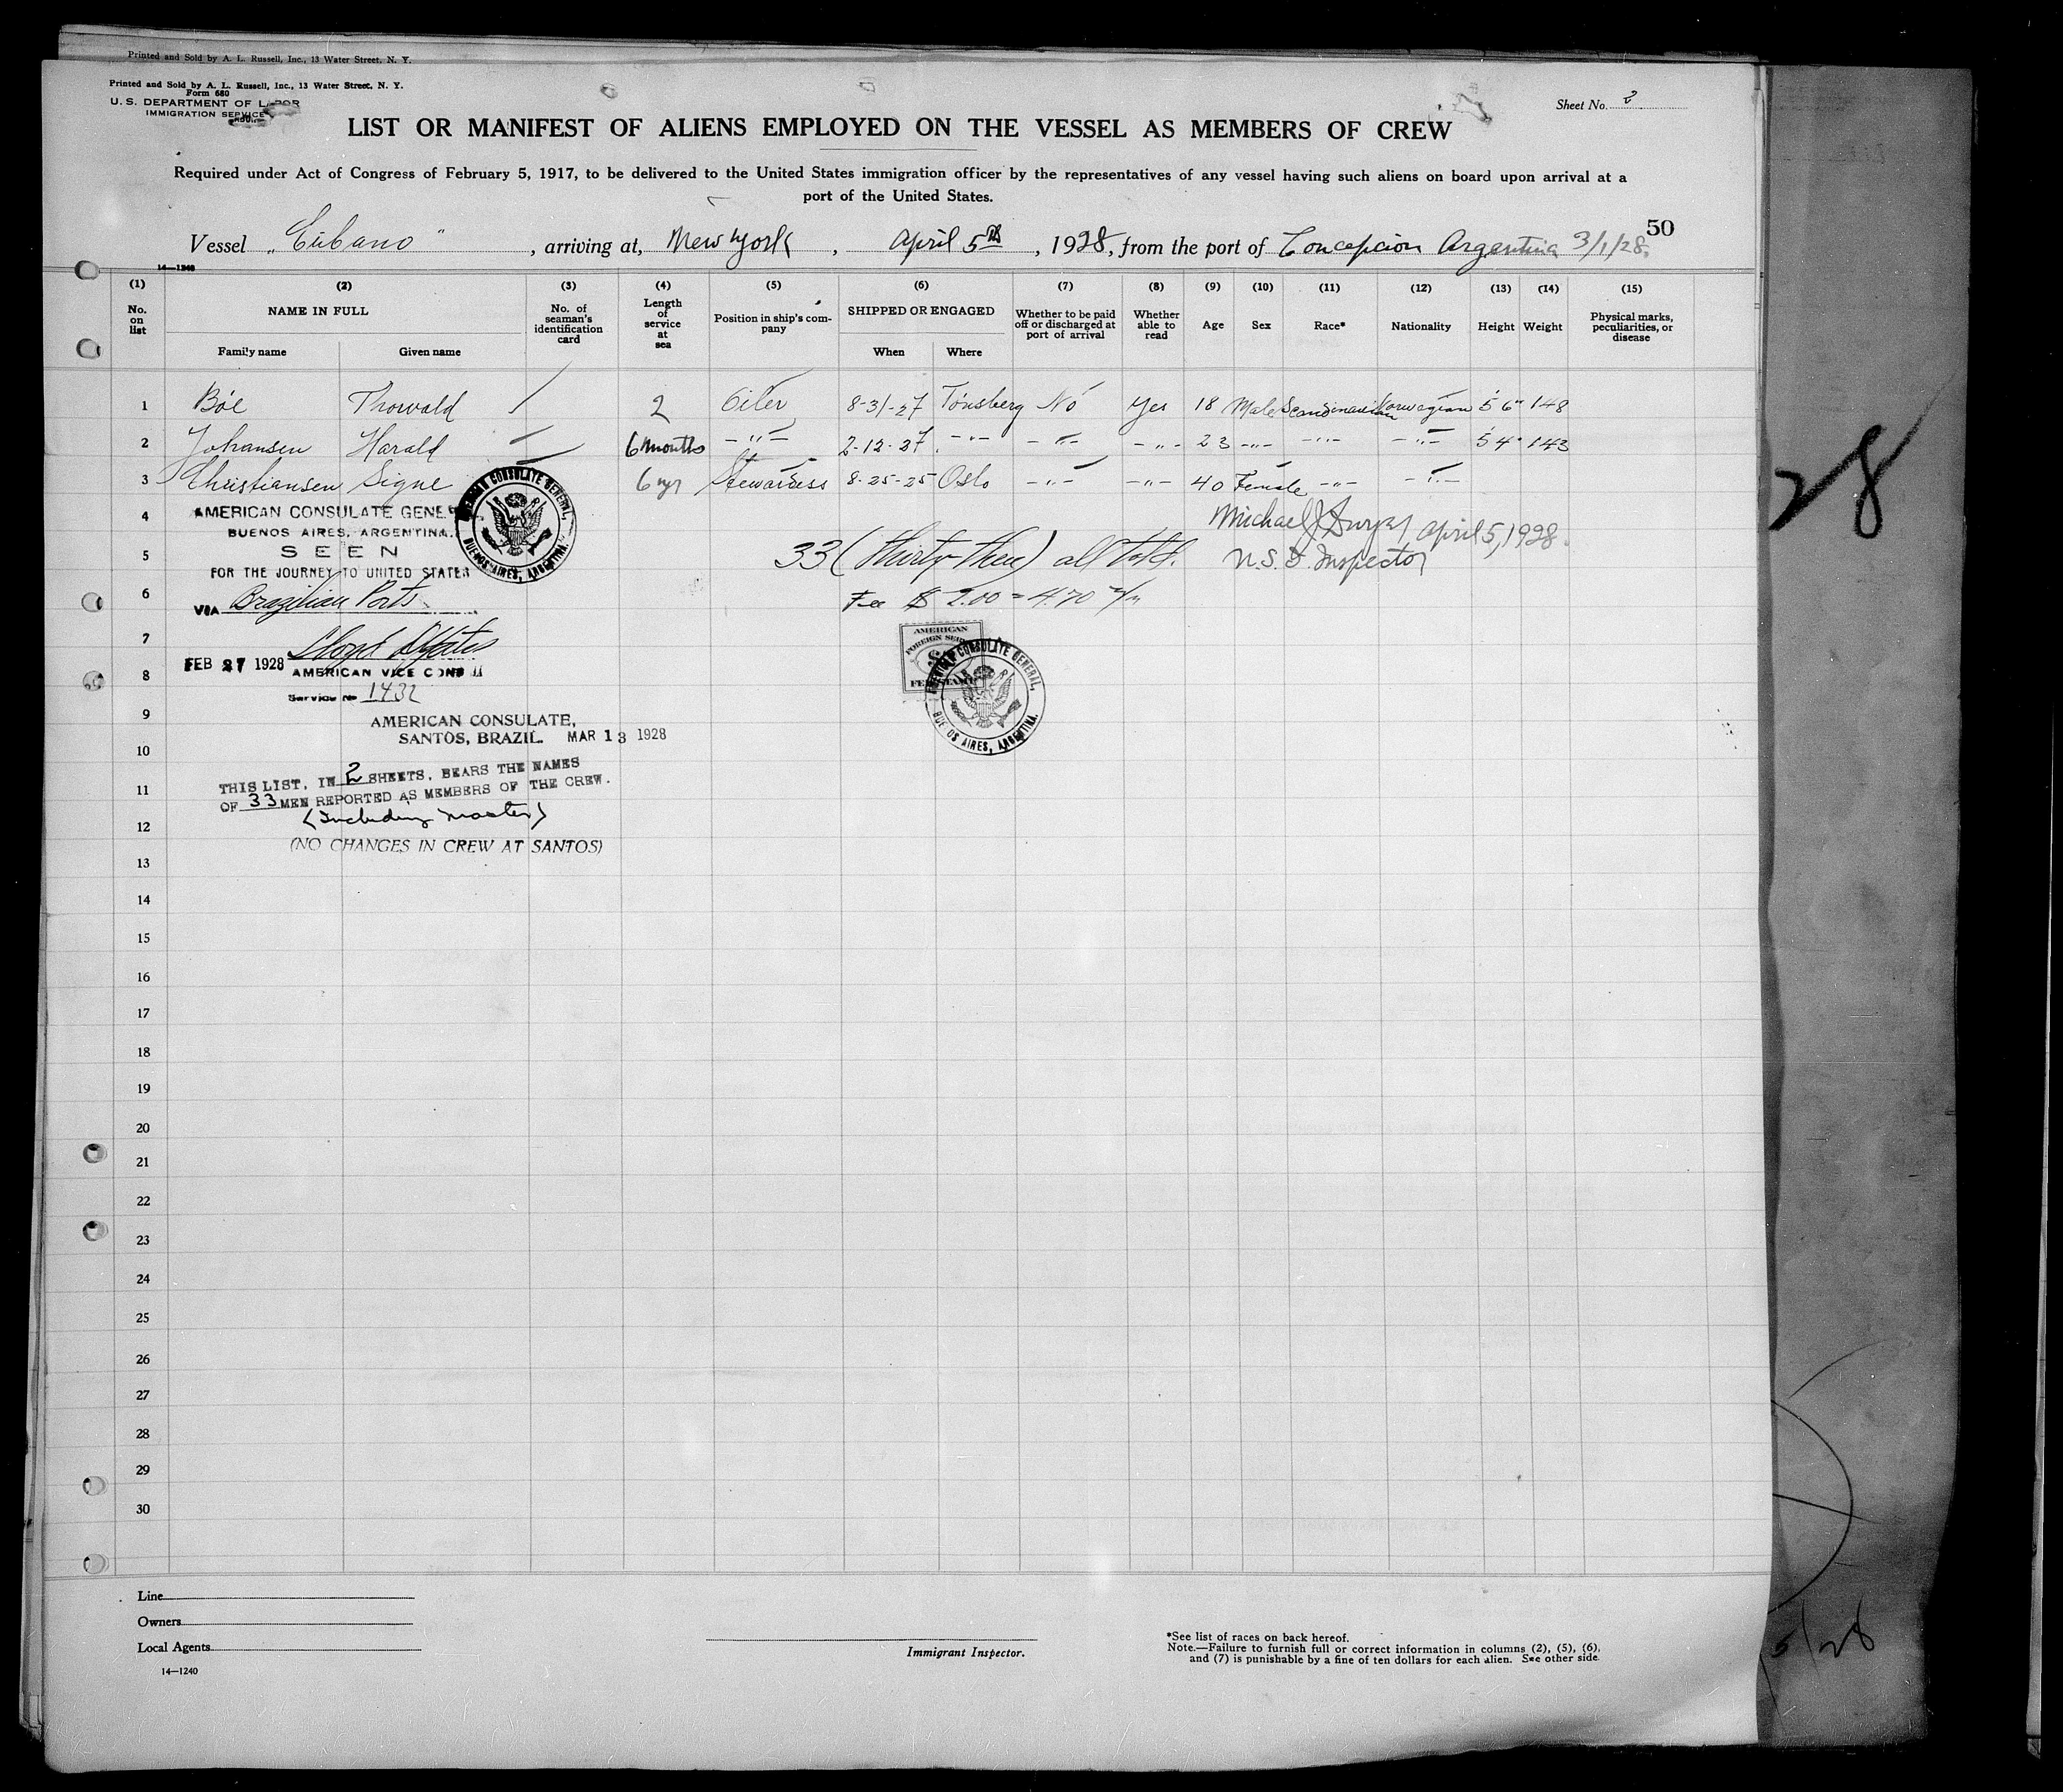 Printed and Sold by A. L. Russell, Inc., 13 Water Street, N. Y.
Printed and Sold by A. L. Russell, Inc., 13 Water Street, N. Y.
Form 680
U. S. DEPARTMENT OF LABOR
IMMIGRATION SERVICE
Sheet No. 2
LIST OR MANIFEST OF ALIENS EMPLOYED ON THE VESSEL AS MEMBERS OF CREW
Required under Act of Congress of February 5, 1917, to be delivered to the United States immigration officer by the representatives of any vessel having such aliens on board upon arrival at a
port of the United States.
50
Vessel „Cubano", arriving at, New York, April 5th, 1928, from the port of Concepcion Argentina 3/1/28.
14—1240
(1) (2) (3) (4) (5) (6) (7) (8) (9) (10) (11) (12) (13) (14) (15)
No. on list NAME IN FULL No. of seaman's identification card Length of service at sea Position in ship's company SHIPPED OR ENGAGED Whether to be paid off or discharged at port of arrival Whether able to read Age Sex Race* Nationality Height Weight Physical marks, peculiarities, or disease
Family name Given name When Where
1 Böe Thorvald 2 Oiler 8-31-27 Tönsberg No Yes 18 Male Scandinavian Norwegian 5 6" 148
2 Johansen Harald 6 months -"- 2-12-27. -"- -"- -"- 23 -"- -"- -"- 5 4" 143
3 Christiansen Signe 6 yr Stewardess 8-25-25 Oslo -"- -"- 40 Female -"- -"-
4 AMERICAN CONSULATE GENE
BUENOS AIRES, ARGENTINA.
Michael J Dwyer April 5, 1928.
5 SEEN
33 (thirty-three) all told. U.S. I. Inspector
FOR THE JOURNEY TO UNITED STATES
6 VIA Brazilian Ports
Fee $ 2.00 = 4.70 m/n
7 FEB 27 1928 Lloyd D Yates
8 AMERICAN VICE CONSUL
Service No 1432
AMERICAN CONSULATE GENERAL,
BUENOS AIRES, ARGENTINA.
AMERICAN
FOREIGN SERVICE
$2
FEE STAMP
AMERICAN CONSULATE GENERAL,
BUENOS AIRES, ARGENTINA.
9 AMERICAN CONSULATE,
SANTOS, BRAZIL. MAR 13 1928
10
11 THIS LIST, IN 2 SHEETS, BEARS THE NAMES
OF 33 MEN REPORTED AS MEMBERS OF THE CREW.
12 (Including Master)
(NO CHANGES IN CREW AT SANTOS)
13
14
15
16
17
18
19
20
21
22
23
24
25
26
27
28
29
30
Line
Owners
Local Agents
14—1240
Immigrant Inspector.
*See list of races on back hereof.
Note.—Failure to furnish full or correct information in columns (2), (5), (6),
and (7) is punishable by a fine of ten dollars for each alien. See other side.
28
5/28